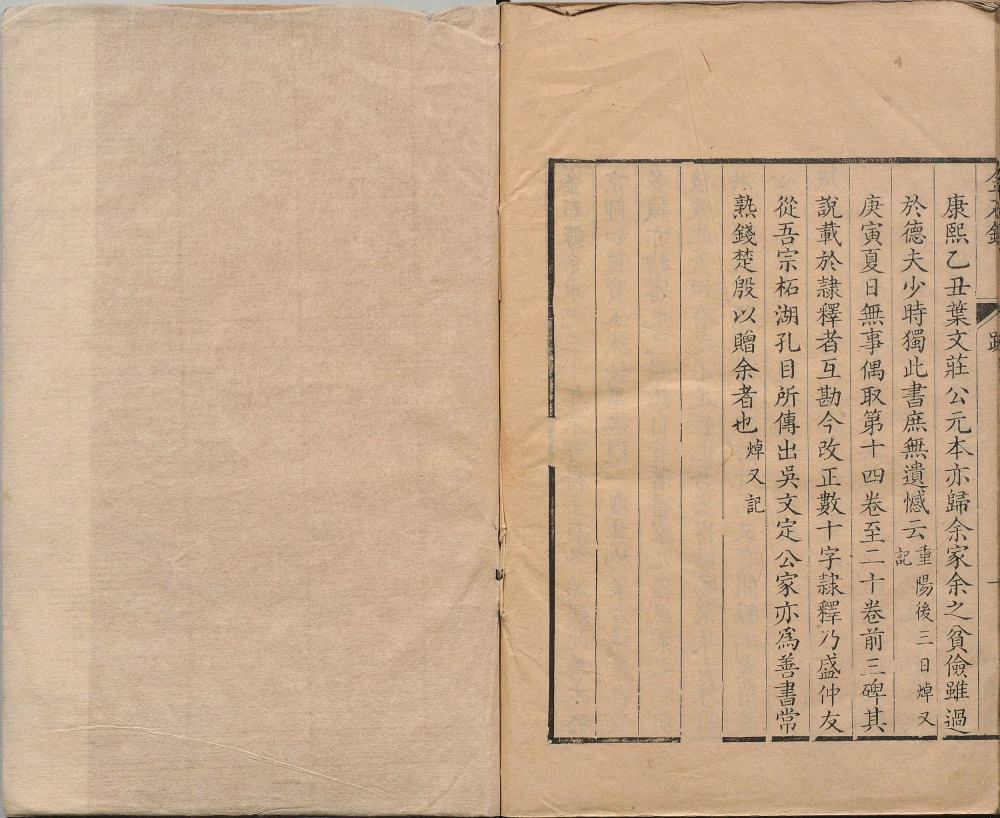 金石錄 跋 十
康熙乙丑葉文莊公元本亦歸余家余之貧儉雖過
於德夫少時獨此書庶無遺憾云重陽後三日焯又
記
庚寅夏日無事偶取第十四卷至二十卷前三碑其
說載於隸釋者互勘今改正數十字隸釋乃盛仲友
從吾宗柘湖孔目所傳出吳文定公家亦為善書常
熟錢楚殷以贈余者也焯又記